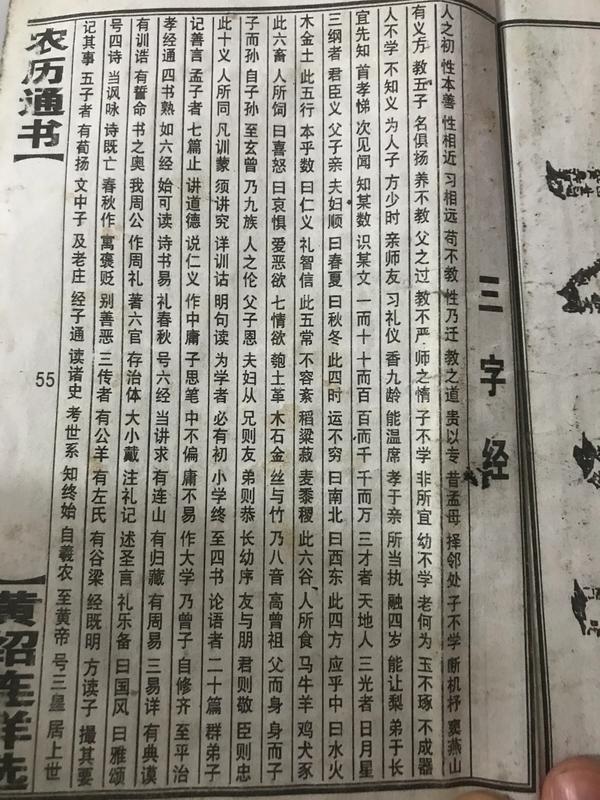 三字经
人之初 性本善 性相近 习相远 苟不教 性乃迁 教之道 贵以专 昔孟母 择邻处 子不学 断机杼 窦燕山
有义方 教五子 名俱扬 养不教 父之过 教不严 师之情 子不学 非所宜 幼不学 老何为 玉不琢 不成器
人不学 不知义 为人子 方少时 亲师友 习礼仪 香九龄 能温席 孝于亲 所当执 融四岁 能让梨 弟于长
宜先知 首孝悌 次见闻 知某数 识某文 一而十 十而百 百而千 千而万 三才者 天地人 三光者 日月星
三纲者 君臣义 父子亲 夫妇顺 曰春夏 曰秋冬 此四时 运不穷 曰南北 曰西东 此四方 应乎中 曰水火
木金土 此五行 本乎数 曰仁义 礼智信 此五常 不容紊 稻粱菽 麦黍稷 此六谷 人所食 马牛羊 鸡犬豕
此六畜 人所饲 曰喜怒 曰哀惧 爱恶欲 七情欲 匏土革 木石金 丝与竹 乃八音 高曾祖 父而身 身而子
子而孙 自子孙 至玄曾 乃九族 人之伦 父子恩 夫妇从 兄则友 弟则恭 长幼序 友与朋 君则敬 臣则忠
此十义 人所同 凡训蒙 须讲究 详训诂 明句读 为学者 必有初 小学终 至四书 论语者 二十篇 群弟子
记善言 孟子者 七篇止 讲道德 说仁义 作中庸 子思笔 中不偏 庸不易 作大学 乃曾子 自修齐 至平治
孝经通 四书熟 如六经 始可读 诗书易 礼春秋 号六经 当讲求 有连山 有归藏 有周易 三易详 有典谟
有训诰 有誓命 书之奥 我周公 作周礼 著六官 存治体 大小戴 注礼记 述圣言 礼乐备 曰国风 曰雅颂
号四诗 当讽咏 诗既亡 春秋作 寓褒贬 别善恶 三传者 有公羊 有左氏 有谷梁 经既明 方读子 撮其要
记其事 五子者 有荀扬 文中子 及老庄 经子通 读诸史 考世系 知终始 自羲农 至黄帝 号三皇 居上世
农历通书】
55
【黄绍连详选